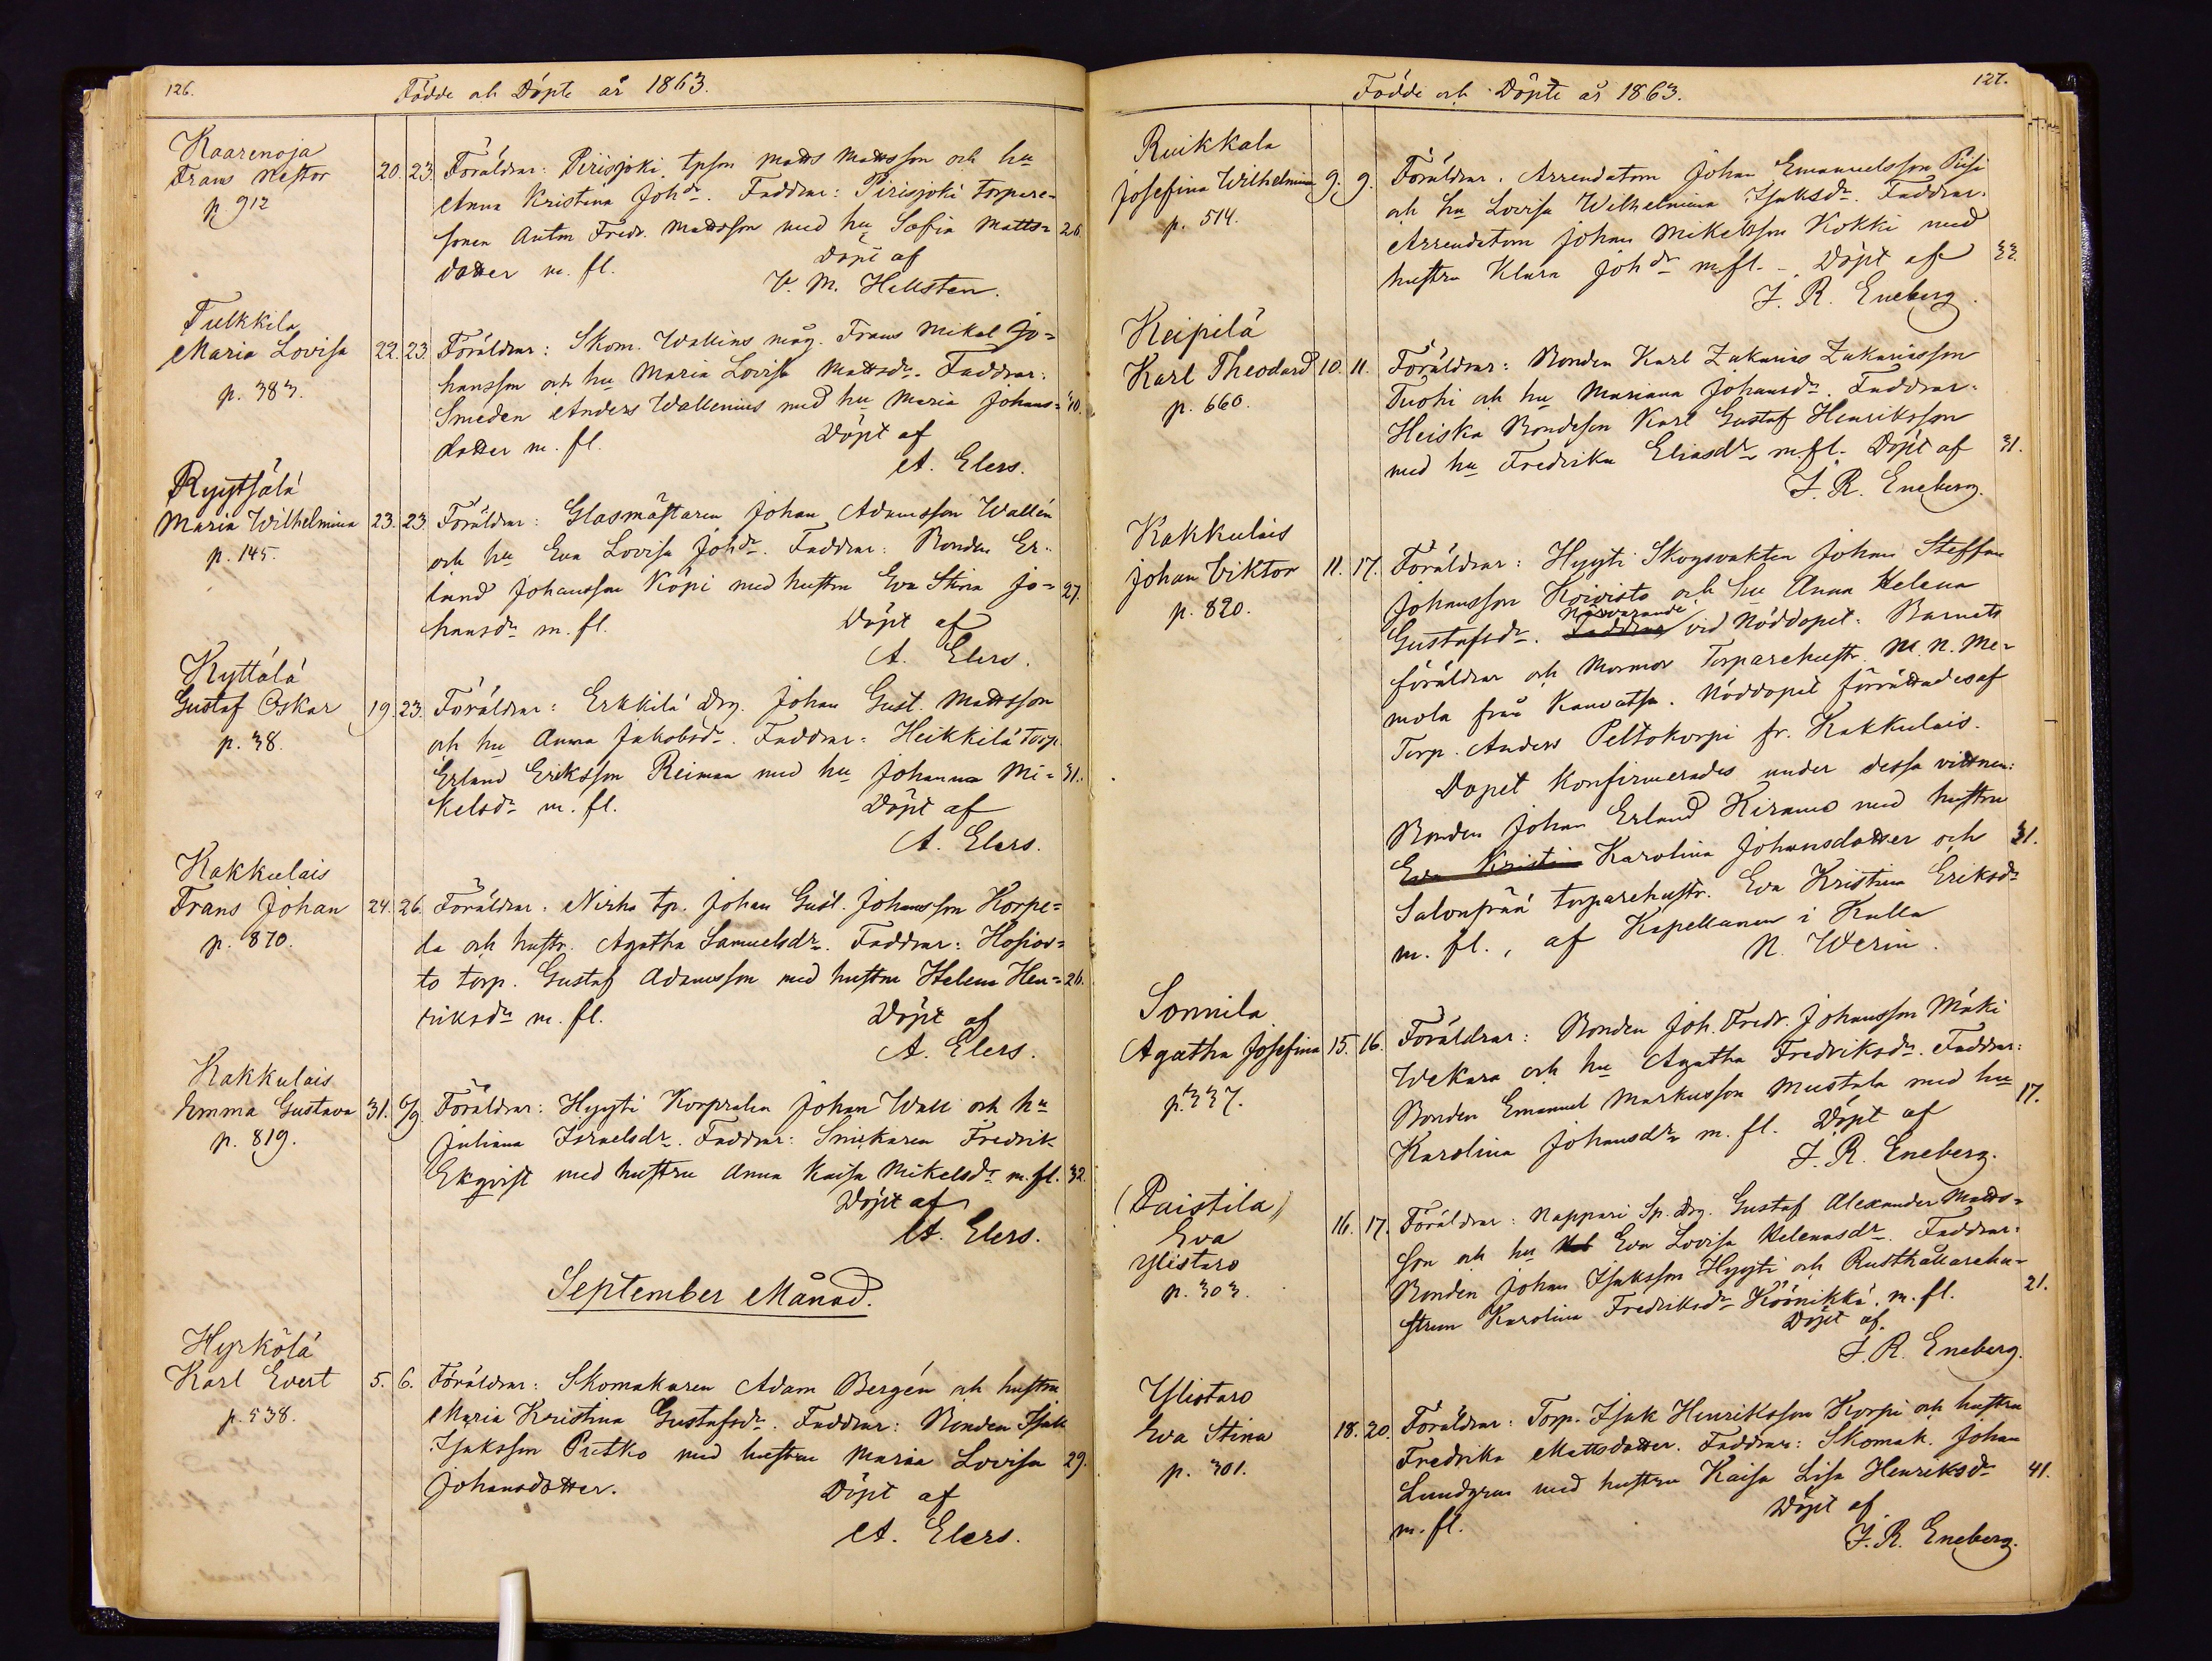 126.
Födde och Döpte år 1863.
Kaarenoja
Frans Nestor
p. 912
20. 23. Föräldrar: Pirisjoki tpson Matts Mattsson och hu
Anna Kristina Johdr. Faddrar: Pirisjoki torpare-
sonen Anton Fredr. Mattsson med hu Sofia Matts= 26.
dotter m. fl. Döpt af
V. M. Hellsten.
Tulkkila
Maria Lovisa
p. 383.
22. 23. Föräldrar: Skom. Wallins måg. Frans Mikel Jo=
hansson och hu Maria Lovisa Mattsdr. Faddrar:
Smeden Anders Wallenius med hu Maria Johans= 40.
dotter m. fl. Döpt af
A. Elers.
Ryytsälä
Maria Wilhelmina
p. 145.
23. 23. Föräldrar: Glasmästaren Johan Adamsson Wallén
och hu Eva Lovisa Johdr. Faddrar: Bonden Er-
land Johansson Köpi med hustru Eva Stina Jo= 27.
hansdr m. fl. Döpt af
A. Elers.
Kyttälä
Gustaf Oskar
p. 38.
19. 23. Föräldrar: Erkkilä drg. Johan Gust. Mattsson
och hu Anna Jakobsdr. Faddrar: Heikkilä Torp.
Erland Eriksson Reiman med hu Johanna Mi= 31.
kelsdr m. fl. Döpt af
A. Elers.
Kakkulais
Frans Johan
p. 870.
24. 26. Föräldrar: Nirho tp. Johan Gust. Johansson Korpe=
la och hustr. Agatha Samuelsdr. Faddrar: Hosios=
to torp. Gustaf Adamsson med hustru Helena Hen= 26.
riksdr m. fl. Döpt af
A. Elers.
Kakkulais
Emma Gustava
p. 819.
31. 6/9. Föräldrar: Hyyti Korpralen Johan Wall och hu
Juliana Israelsdr. Faddrar: Snickaren Fredrik
Ekqvist med hustru Anna Kaisa Mikelsdr m. fl. 32.
Döpt af
A. Elers.
September Månad.
Hyrkölä
Karl Evert
p. 538.
5. 6. Föräldrar: Skomakaren Adam Bergén och hustru
Maria Kristina Gustafsdr. Faddrar: Bonden Isak
Isaksson Pietko med hustru Maria Lovisa 29.
Johansdotter. Döpt af
A. Elers.
Födde och Döpte år 1863.
127.
Ruikkala
Josefina Wilhelmina
p. 514.
9. 9. Föräldrar: Arrendatorn Johan Emanuelsson Piisi
och hu Lovisa Wilhelmina Isaksdr. Faddrar:
Arrendatorn Johan Mikelsson Kokki med
hustru Klara Johdr m. fl. Döpt af 33.
J. R. Eneberg.
Keipilä
Karl Theodard
p. 660.
10. 11. Föräldrar: Bonden Karl Zakarias Zakariasson
Tuohi och hu Mariana Johansdr. Faddrar:
Heiska Bondeson Karl Gustaf Henriksson
med hu Fredrika Eliasdr m. fl. Döpt af 31.
J. R. Eneberg.
Kakkulais
Johan Viktor
p. 820.
11. 17. Föräldrar: Hyyti Skogsvakten Johan Steffan
Johansson Koivisto och hu Anna Helena
Närvarande
Gustafsdr. Faddrar vid Nöddopet: Barnets
föräldrar och Mormor Torparehustr. M. N. Me-
mola från Kauvatsa. Nöddopet förrättades af
Torp. Anders Peltokorpi fr. Kakkulais.
Dopet konfirmerades under dessa vittnen:
Bonden Johan Erland Hiramo med hustru
Eva Kristin Karolina Johansdotter och 31.
Salonpää torparehustr. Eva Kristina Eriksdr
m. fl., af Kapellanen i Kulla
N. Werin.
Sonnila
Agatha Josefina
p. 337.
15. 16. Föräldrar: Bonden Joh. Fredr. Johansson Mäki
Wekara och hu Agatha Fredriksdr. Faddrar:
Bonden Emanuel Markusson Mustala med hu 17.
Karolina Johansdr m. fl. Döpt af
J. R. Eneberg.
(Paistila)
Eva
Ylistaro
p. 303.
16. 17. Föräldrar: Nappari Sp. drg. Gustaf Alexander Matts-
son och hu Eva Lovisa Helenasdr. Faddrar:
Bonden Johan Isaksson Hyyti och Rusthållarehu-
strun Karolina Fredriksdr Köönikkä. m. fl. 21.
Döpt af.
J. R. Eneberg.
Ylistaro
Eva Stina
p. 301.
18. 20. Föräldrar: Torp. Isak Henriksson Korpi och hustru
Fredrika Mattsdotter. Faddrar: Skomak. Johan
Lundgren med hustru Kaisa Lisa Henriksdr 41.
m. fl. Döpt af
J. R. Eneberg.